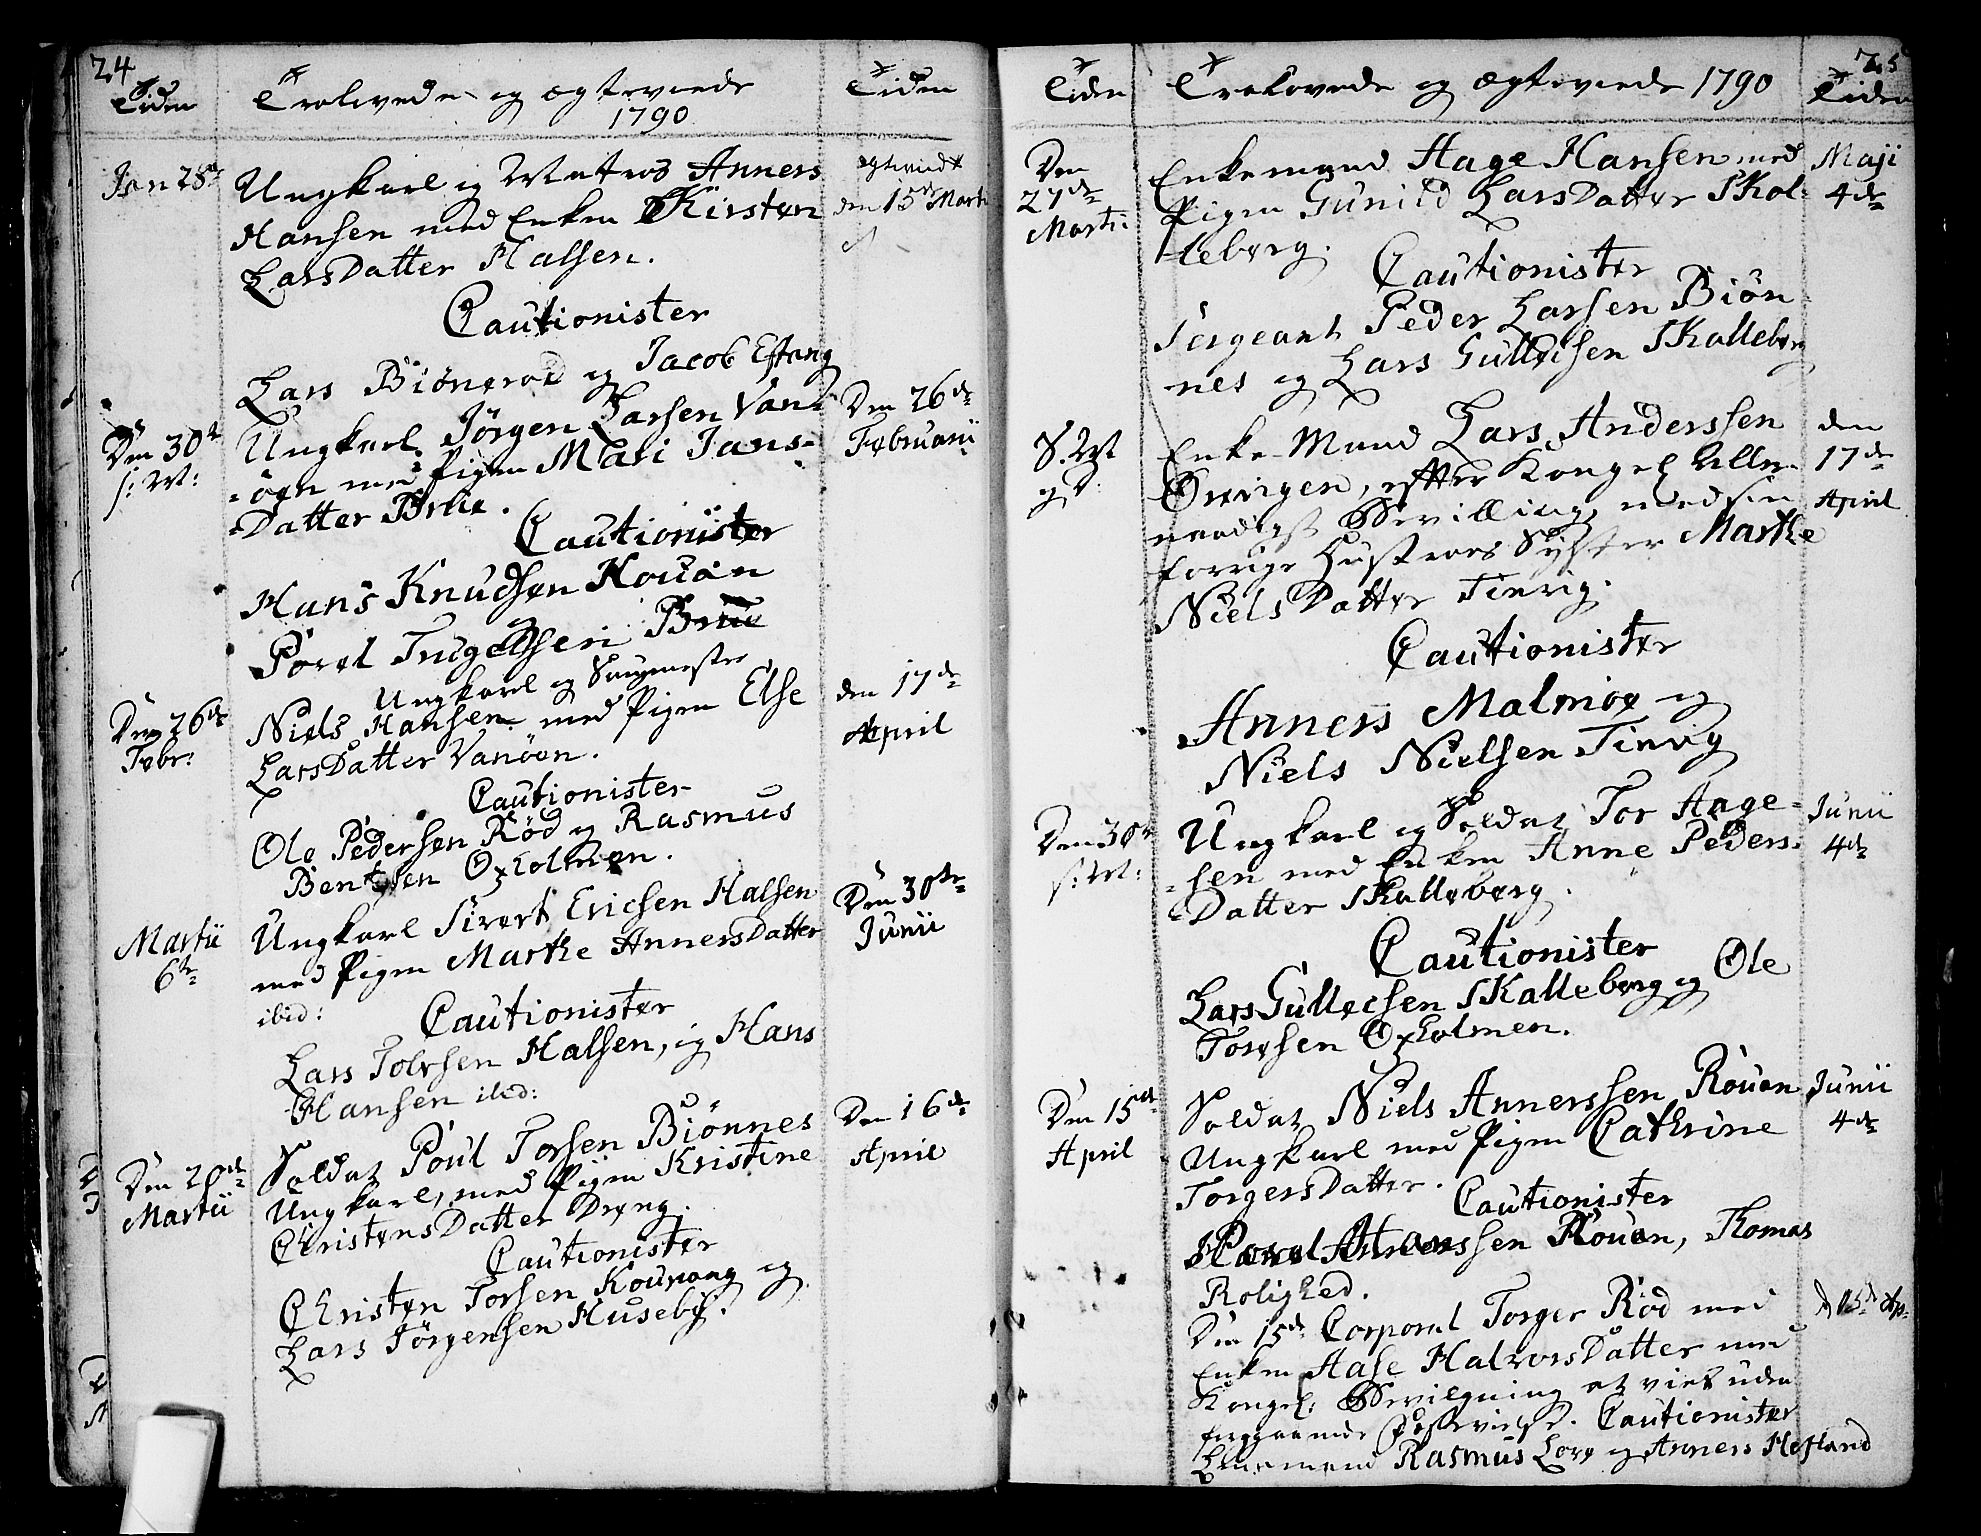 24
Tiden
Trolovede og ægteviede
1790
Tiden
Jan 28de
Ungkarl og Matros Anners
Hansen med Enken Kirsten
LarsDatter Halsen.
ægteviede
den 15de Marti
Cautionister
Lars Biönerød og Jacob Eftang
Den 30te
s: M:
Ungkarl Jörgen Larsen Van-
öen med Pigen Mari Jans-
Datter Brue.
Den 26de
Februarii
Cautionister
Hans Knudsen Houan
og
Povel Ingelsen Brue
Den 26de
Febr:
Ungkarl og Saugmester
Niels Hansen med Pigen Else
LarsDatter Vanöen.
den 17de
April
Cautionister
Ole Pedersen Röd og Rasmus
Bentsen Oxholmen.
Martii
6te
Ungkarl Sivert Ericsen Halsen
med Pigen Marthe AnnersDatter
ibid:
Den 30te
Junii
Cautionister
Lars Tolvsen Halsen, og Hans
Hansen ibid:
Den 20de
Martii
Soldat Poul Torsen Biönnes
Ungkarl, med Pigen Kristine
ChristensDatter Dreng.
Den 16de
April
Cautionister
Christen Torsen Kounang og
Lars Jörgensen Huseby.
25
Tiden
Trolovede og ægteviede 1790
Tiden
Den
27de
Marti:
Enkemand Aage Hansen med
Pigen Gunild LarsDatter Skal-
leberg.
Maji
4de
Cautionister
Sergeant Peder Larsen Biön
nes og Lars Gullecsen Skalleberg
S. M
og D:
Enke-Mand Lars Anderssen
Öveingen, efter Kongel Aller
naadigst Bevilling, med sin
forrige Hustroes Syster Marthe
NielsDatter Tinvig.
den
17de
April
Cautionister
Anners Malmöe og
Niels Nielsen Tinvig
Den 30te
s: M:
Ungkarl og Soldat Tor Aage-
sen med Enken Anne Peders-
Datter Skalleberg.
Junii
4de
Cautionister
Lars Gullecsen Skalleberg og Ole
Toresen Oxholmen.
Den 15de
April
Soldat Niels Annerssen Rouan
Ungkarl med Pigen Cathrine
TorgersDatter.
Junii
4de
Cautionister
Povel Annerssen Rouen, Thomas
Rolighed.
Den 15de Corporal Torger Röd med
Enken Aase HalvorsDatter med
Kongel: Bevilgning at vies uden
foregaaende
d 15de Ap:
Cautionister
Lensmand Rasmus Love og Anners Hofland